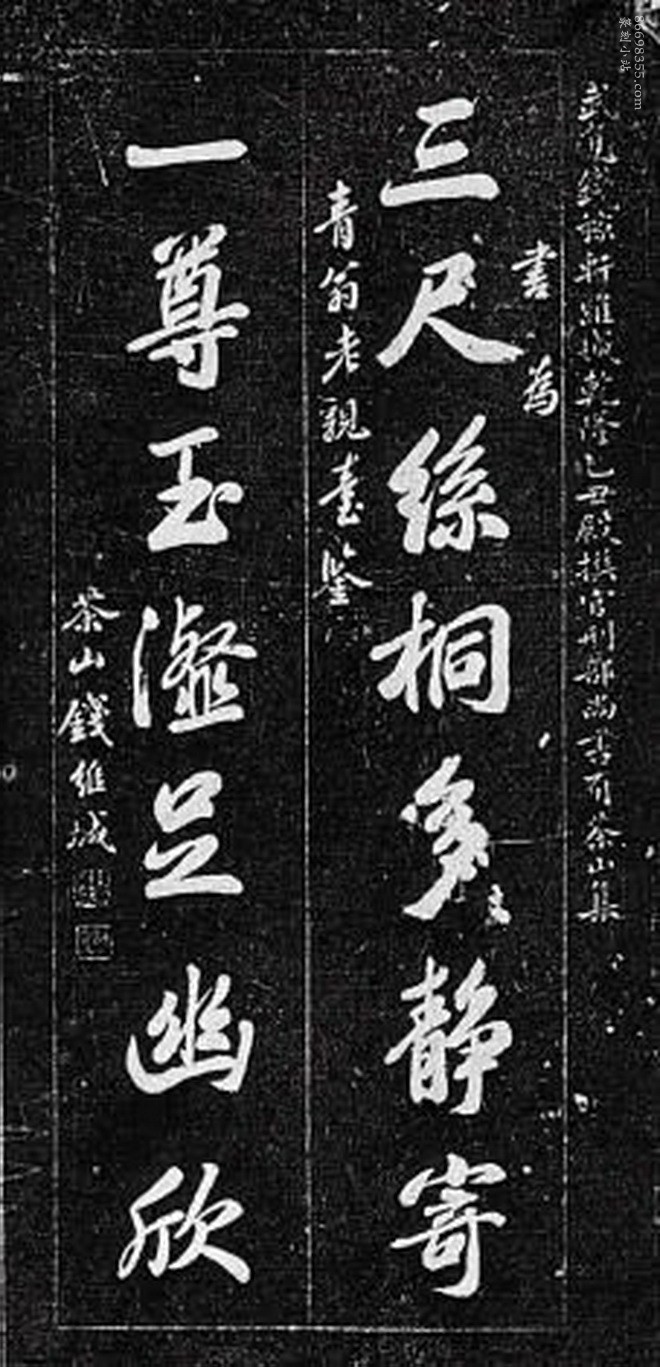 86698355.com
篆刻小站
武進錢稼軒維城乾隆乙丑殿撰官刑部尚書有茶山集
書為
三尺絲桐多靜寄
青翁老親臺鑒
一尊玉瀣足幽欣
茶山錢維城